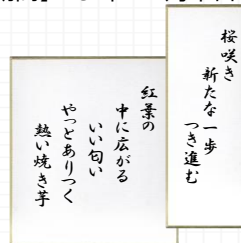 桜咲き
新たな一歩
つき進む
紅葉の
中に広がる
いい匂い
やっとありつく
熱い焼き芋